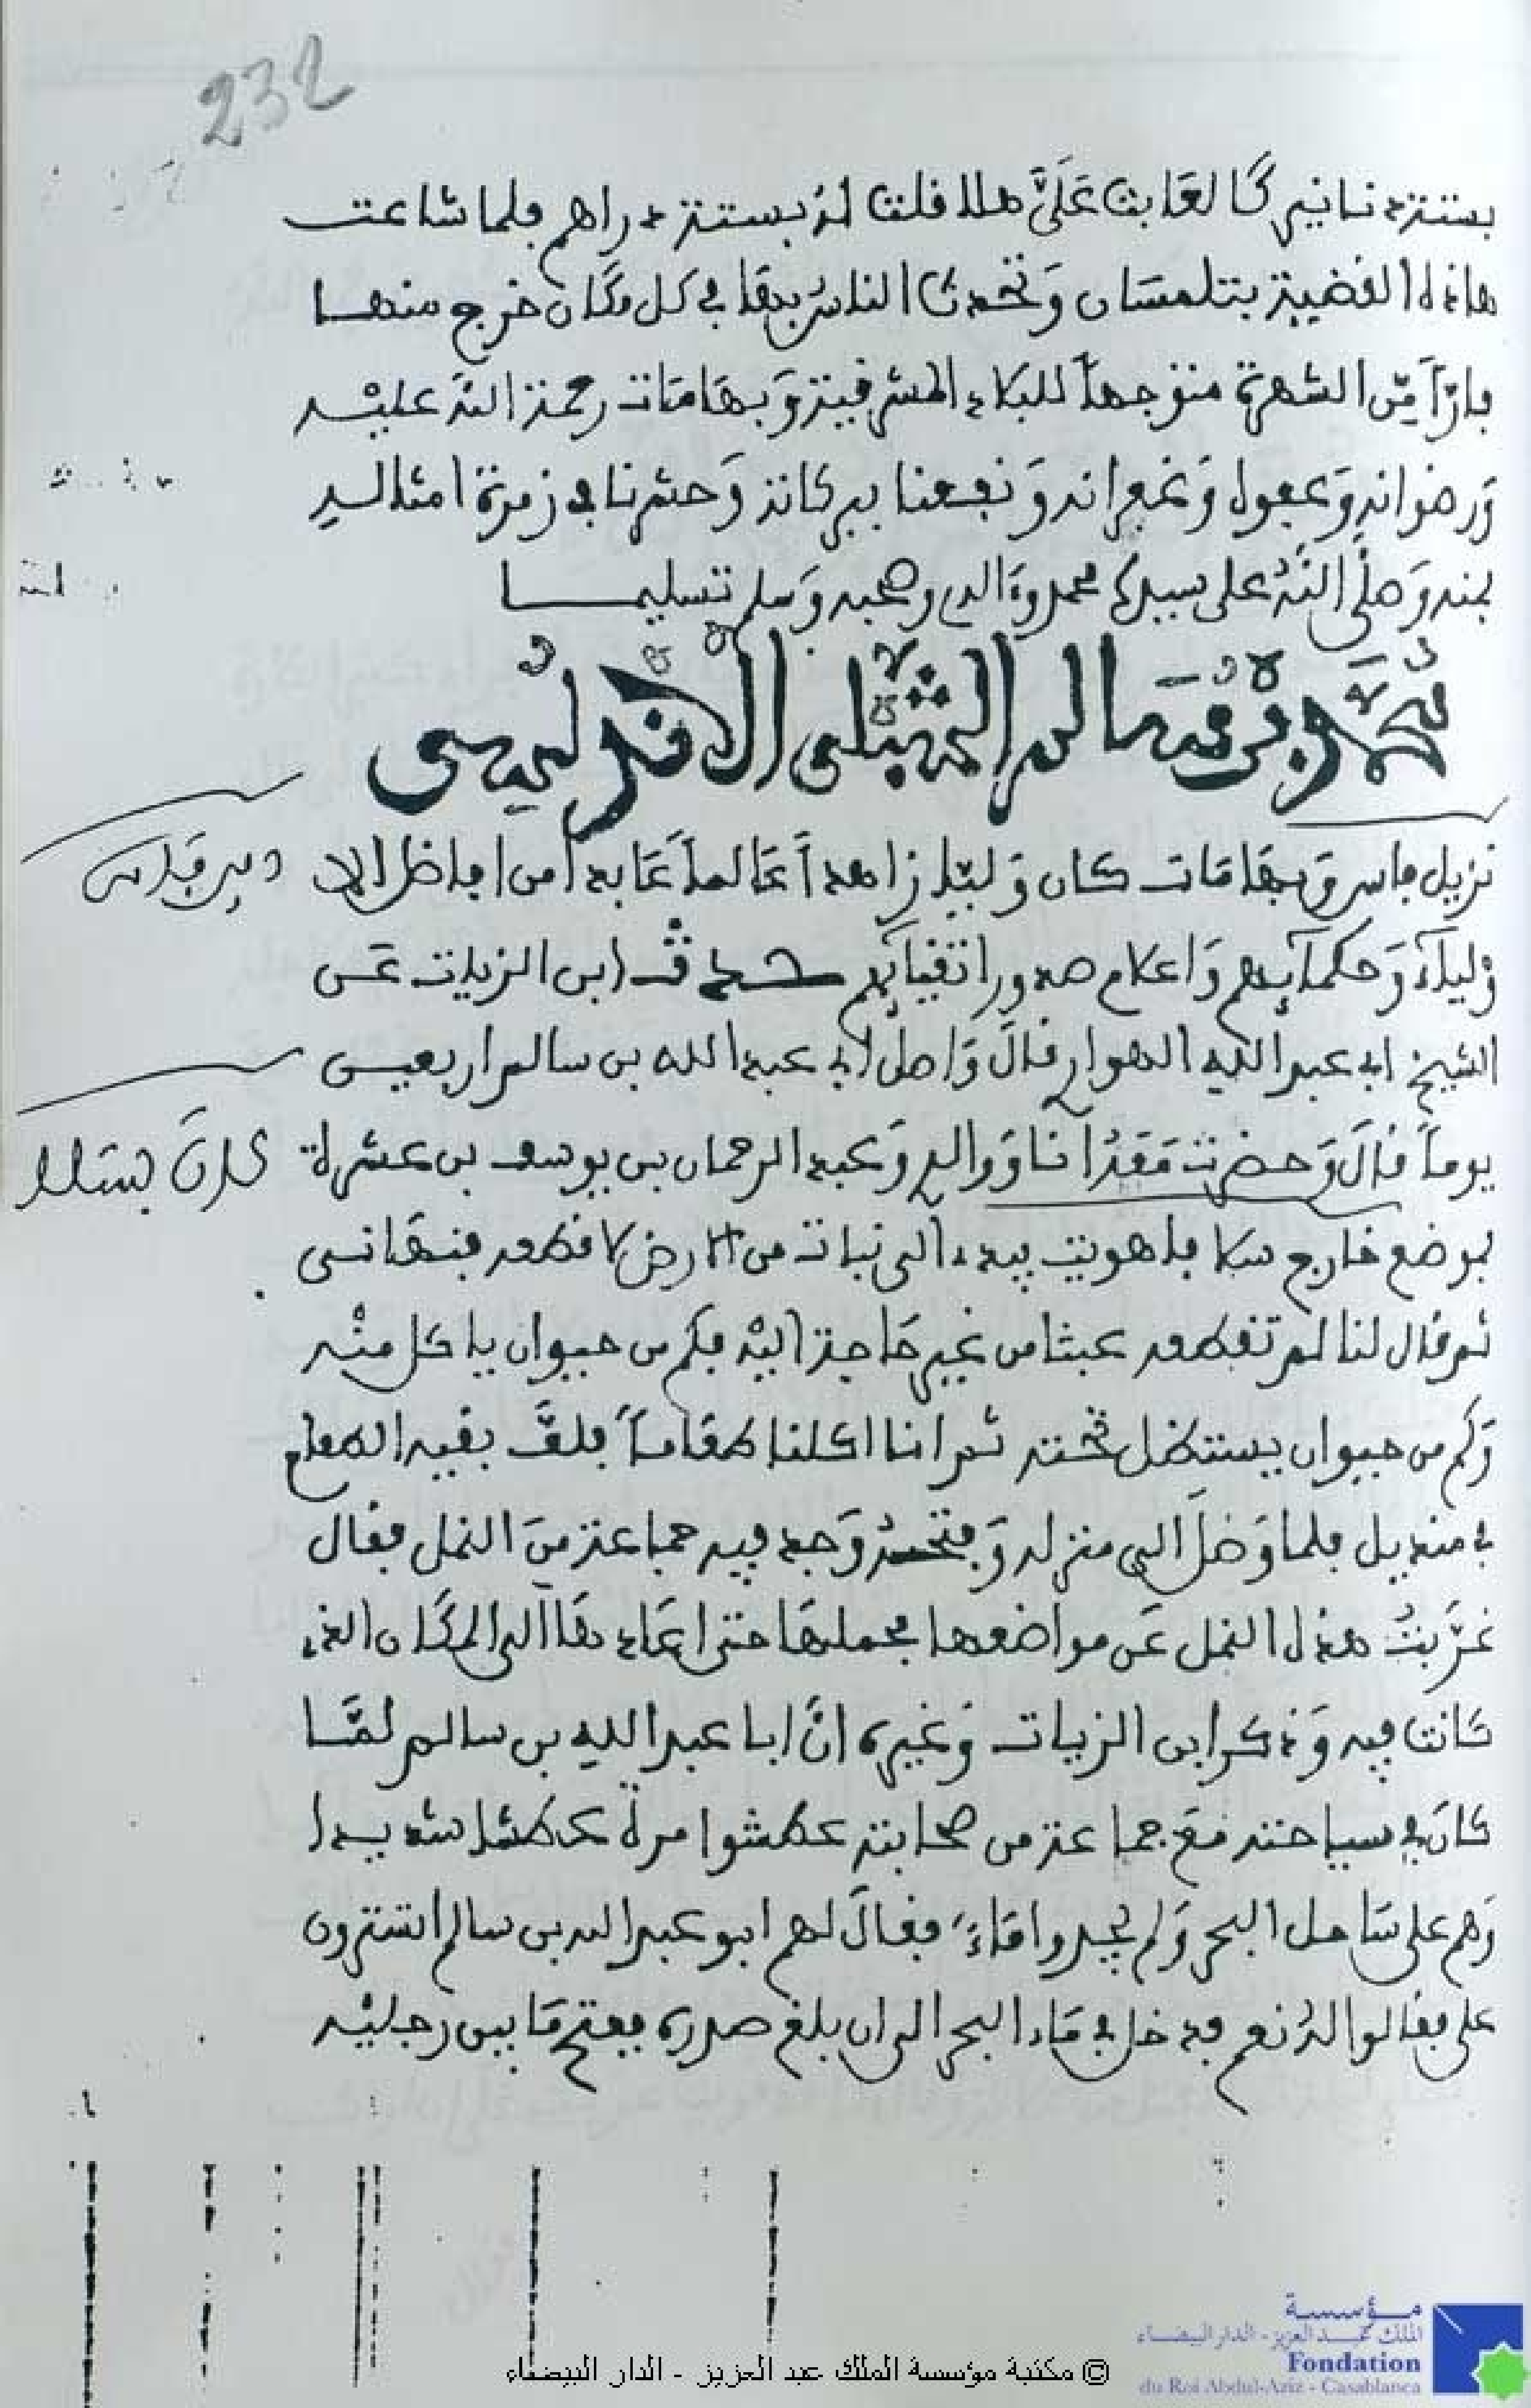 232
بستة دنانير كالعابث عليَّ هلا قلت له بستة دراهم فلما شاعت
هاذه القضية بتلمسان وتحدث الناس بها في كل مكان خرج منها
فارّاً من الشهرة متوجهاً للبلاد المشرفية وبها مات رحمة الله عليه
ورضوانه وعفوه وغفرانه ونفعنا ببركاته وحشرنا في زمرة امثاله
بمنه وصلى الله على سيدنا محمد وءاله وصحبه وسلم تسليما
محمد بن سالم الشلبي الاندلسي
نزيل فاس وبها مات كان وليا زاهداً عالماً عابداً من افاضل الا
ولياء وحكمايهم واعلام صدور اتقيايهم حدث ابن الزيات عن
الشيخ ابي عبد الله الهواري قال واصل ابي عبد الله بن سالم اربعين
يوماً قال وحضرت معه انا ووالدي وعبد الرحمان بن يوسف بن عشرة
كان بسلا
بموضع خارج سلا فاهويت بيدي الى نبات من الارض لاقطعه فنهاني
ثم قال لنا لم تقطعه عبثا من غير حاجة اليه فكم من حيوان ياكل منه
وكم من حيوان يستظل تحته ثم انا اكلنا طعاماً فلفَّ بقية الطعام
في منديل فلما وصل الى منزله وفتحه وجد فيه جماعة من النمل فقال
غرّبتُ هذه النمل عن مواضعها فحملها حتى اعادها الى المكان الذي
كانت فيه وذكر ابن الزيات وغيره انّ ابا عبد الله بن سالم لمّا
كان في سياحته مع جماعة من صحابته عطشوا مرة عطشا شديدا
وهم على ساحل البحر ولم يجدوا ماءً فقال لهم ابو عبد الله بن سالم اتسترون
علي فقالوا له نعم فدخل في ماء البحر الى ان بلغ صدره ففتح ما بين رجليه
© مكتبة مؤسسة الملك عبد العزيز - الدار البيضاء
مؤسسة
الملك عبد العزيز - الدار البيضاء
Fondation
du Roi Abdul-Aziz - Casablanca